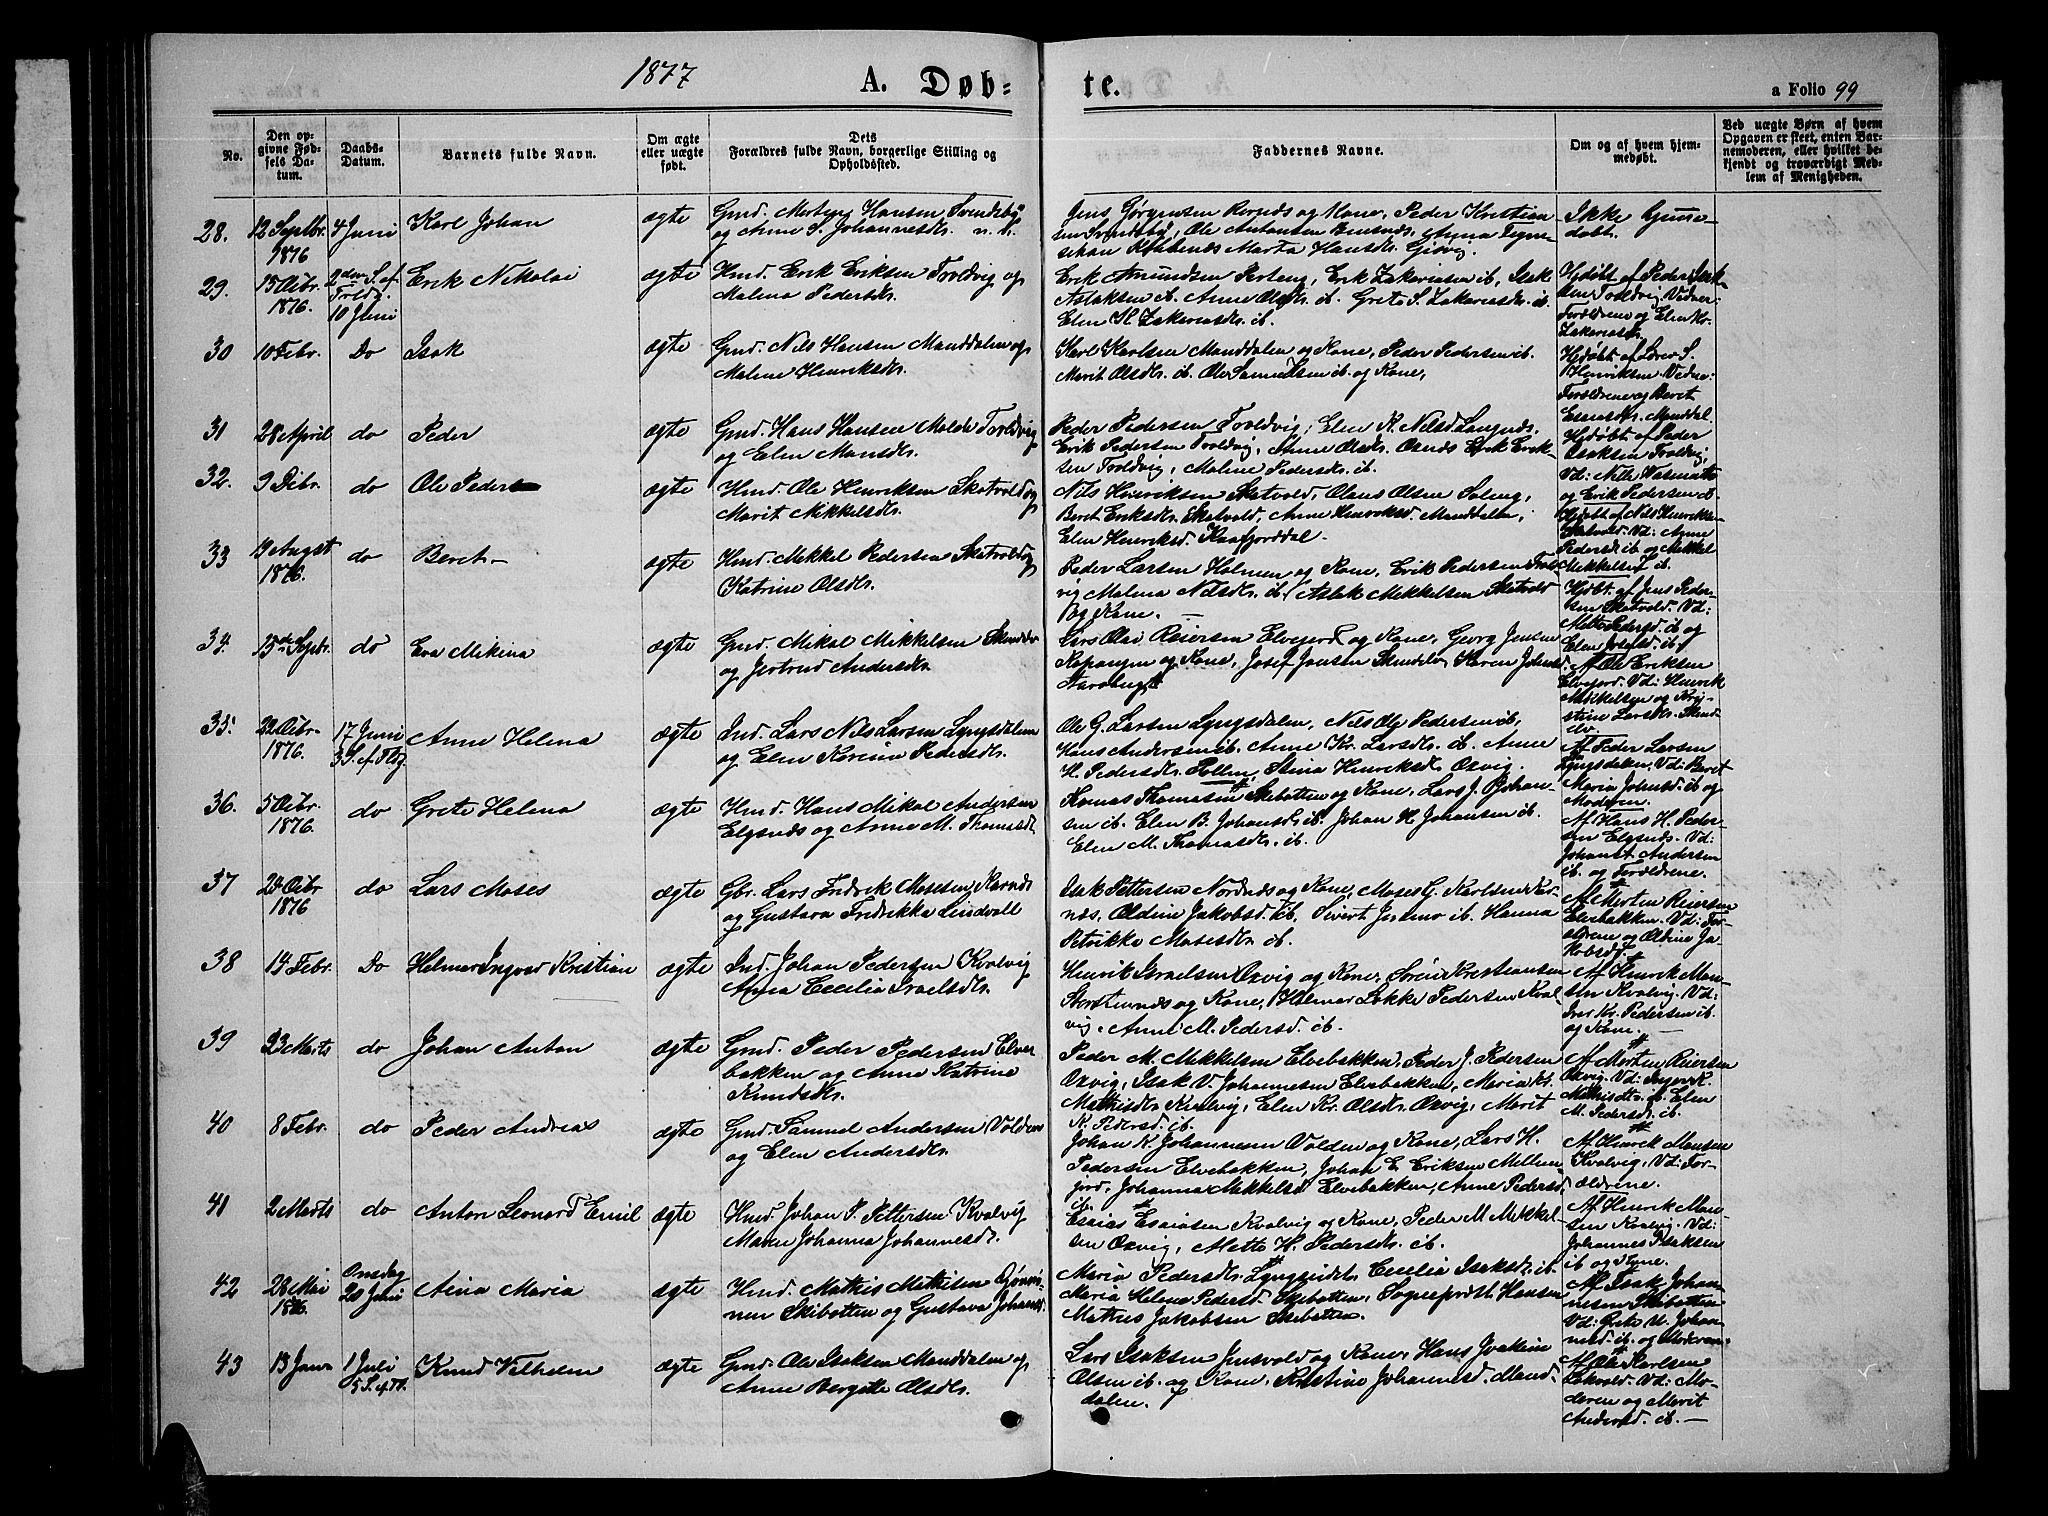 1877
A. Døb-
te.
a Folio 99
No.
Den op-
givne Fød-
sels Da-
tum.
Daabs-
Datum.
Barnets fulde Navn.
Om ægte
eller uægte
født.
Dets
Forældres fulde Navn, borgerlige Stilling og
Opholdssted.
Faddernes Navne.
Om og af hvem hjem-
medøbt.
Ved uægte Børn af hvem
Opgaven er skeet, enten Bar-
nemoderen, eller hvilket be-
kjendt og troværdigt Med-
lem af Menigheden.
28.
12 Septbr.
1876
4 Juni
Karl Johan
ægte
Gmd. Morten Hansen Svendsby
og Anne S. Johannesdr.
Jens Jørgensen og Kone, Peder Kristian-
sen Ole Antonsen Anna
Marta Hansdr. Gjøvig
Ikke hjemme-
døbt.
29.
15 Dcbr.
1876.
2den S. ef.
Trefdg.
10 Juni
Erik Nikolai
ægte
Hmd. Erik Eriksen Troldvig og
Malena Pedersdr.
Erik Amundsen Perteng, Erik Zakariasen ib, Isak
Aslaksen ib. Anne Olsdr. ib. Grete S. Zakariasdr. ib.
Elen M. Zakariasdr. ib.
Hjdøbt af Peder Isak-
sen Troldvig. Vidner:
Forældrene og Elen Kr.
Zakariasdr.
30
10 Febr.
Do
Isak
ægte
Gmd. Nils Hansen Manddalen og
Malene Henriksdr.
Karl Karlsen Manddalen og Kone, Peder Pedersen ib.
Marit Olsdr. ib. Ole Samuelsen ib. og Kone,
Hjdøbt af S.
Henriksen. Vidne:
Forældrene og Beret
Esaiasdr. Manddal.
31
28 April
do
Peder
ægte
Gmd. Hans Hansen Molde Troldvig
og Elen Monsdr.
Peder Pedersen Troldvig, Elen K. Nilsd. Langnæs,
Erik Pedersen Troldvig, Anne Olsdr. Osnæs Erik Erik-
sen Troldvig, Malene Pedersdr. ib.
Hjdøbt af Peder
Isaksen Troldvig,
Vd: Nils
og Erik Pedersen ib.
32.
9 Dcbr.
do
Ole Peder
ægte
Hmd. Ole Henriksen Skotvold og
Marit Mikkelsdr.
Nils Henriksen Skotvold, Olaus Olsen Soleng,
Beret Eriksdr. Skotvold, Anne Henriksd. Manddalen,
Elen Henriksd. Kaafjorddal.
Hjdøbt af Nils Henriksen
Skotvold. Vd: Anne
Pedersd. ib og Mikkel
Mikkelsen ib.
33
19 August
1876.
do
Beret
ægte
Hmd. Mikkel Pedersen Skotvold og
Katrine Olsdr.
Peder Larsen Holmen og Kone, Erik Pedersen Trold-
vig Malena Nilsdr. ib. Aslak Mikkelsen Skotvold
og Kone.
Hjdbt. af Jens Peder-
sen Skotvold. Vd:
Mette Pedersd. ib og
Elen ib.
34.
15de Septbr.
do
Eva Mikina
ægte
Gmd. Mikal Mikkelsen
og Jertrud Andersdr.
Lars Olai Reiersen Elvejord og Kone, Georg Jensen
Kopangen og Kone, Josef Jensen Karen
Af Ole Eriksen
Elvejord. Vd: Henrik
Mikkelsen og Kri-
stine Larsdr.
35.
22 Dcbr.
1876.
17 Juni
3 S. ef. Tref.
Anne Helena
ægte
Ind. Lars Nils Larsen Lyngsdalen
og Elen Karina Pedersdr.
Ole G. Larsen Lyngsdalen, Nils Ole Pedersen ib,
Hans Andersen ib. Anne Kr. Larsdr. ib. Anne
H. Pedersdr. Pollen, Stina Henriksdr. Oxvig.
Af Peder Larsen
Lyngsdalen, Vd: Beret
Maria Johnsd. ib og
Moderen.
36.
5 Dcbr.
1876.
do
Grete Helena
ægte
Hmd. Hans Mikal Andersen
Elgsnæs og Anne M. Thomasdr.
Tomas Thomassen Skibotten og Kone, Lars J. Johan-
sen ib. Elen B. Johansdr. ib. Johan H. Johansen ib.
Elen M. Thomasdr. ib.
Af Hans H. Peder-
sen Elgsnæs. Vd:
Johans Andersen
ib. og Forældrene.
37
24 Dcbr
1876
do
Lars Moses
ægte
Gbr. Lars Fredrik Mosesen, Karnæs
og Gustava Fredrikka Lindvall
Isak Pettersen Nordnæs og Kone, Moses G. Karlsen Kar-
næs, Oldine Jakobsd. ib. Sivert ib. Hanna
Petrikke Mosesdr. ib.
Af Morten Reiersen
Elvebakken. Vd: For-
ældrene og Oldine Ja-
kobsd.
38
14 Febr.
Do
Helmer Ingvar Kristian
ægte
Ind. Johan Pedersen Kvalvig
Anna Cecilia Israelsdr.
Henrik Israelsen Oxvig og Kone, Søren Kristiansen
og Kone, Helmer Løkke Pedersen Kval-
vig. Anne M. Pedersd. ib.
Af Henrik Mon-
sen Kvalvig. Vd:
Iver Kr. Pedersen ib.
og Kone.
39
23 Marts
do
Johan Anton
ægte
Gmd. Peder Pedersen Elve
bakken og Anne Katrine
Knudsdr.
Peder M. Mikkelsen Elvebakken, Peder J. Pedersen
Oxvig, Isak V. Johannesen Elvebakken, Maria Kr.
Mathisdr. Kvalvig, Elen Kr. Olsdr. Oxvig, Marit
N. Pedersd. ib.
Af Morten Reiersen
Oxvig. Vd: K.
Mathisdr. ib. Elen
M. Pedersdr. ib.
40
8 Febr.
do
Peder Andreas
ægte
Gmd. Samuel Andersen Volden
og Elen Andersdr.
Johan K. Johannesen Volden og Kone, Lars H.
Pedersen Elvebakken, Johan E. Eriksen Mellem-
jord, Johanna Mikkelsd. Elvebakken, Anne Pedersd.
ib.
Af Henrik Monsen
Kvalvig. Vd: For-
ældrene.
41
2 Marts
do
Anton Leonard Emil
ægte
Hmd. Johan P. Pettersen Kvalvig
Maren Johanna Johannesdr.
Esaias Esaiasen Kvalvig og Kone, Peder M. Mikkel-
sen Oxvig, Mette H. Pedersdr. ib.
Af Henrik Mon-
sen Kvalvig. Vd:
Johannes Isaksen
ib og Kone.
42
28 Mai
1876.
Onsdag
20 Juni
Aina Maria
ægte
Hmd. Mathis Mathisen
nen Skibotten og Gustava Johansd.
Maria Pedersdr. Lyngseidet, Cecilia Isaksdr. ib.
Maria Helene Pedersd. Skibotten, Sogneprest Hansen
Mathis Jakobsen Skibotten.
Af Isak Johan-
nesen Skibotten
Vd: Johan-
nesd. ib. og Moderen
43
13 Janr
1 Juli
5 S. ef. Tr.
Knud Vilhelm
ægte
Gmd. Ole Isaksen Manddalen og
Anne Bergitte Olsdr.
Lars Isaksen Jensvold og Kone, Hans Joakim
Olsen ib. og Kone, Kristine Johannesd. Mand-
dalen.
Af Ole Karlsen
Vd: Mo-
deren og Marit
Andersd. ib.